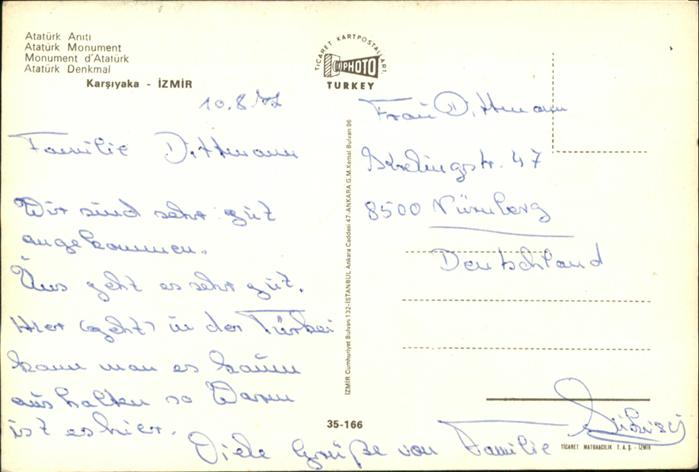 Atatürk Anıtı
Atatürk Monument
Monument d'Atatürk
Atatürk Denkmal
Karşıyaka - İZMİR
TİCARET KARTPOSTALLARI
PHOTO
TURKEY
10.8.
Familie Dittmann
Wir sind sehr gut
angekommen.
Uns geht es sehr gut.
Hier (geht) in der Türkei
kann man es kaum
aushalten so Warm
ist es hier.
Viele Grüße von Familie
Frau Dittmann
47
8500 Nürnberg
Deutschland
İZMİR Cumhuriyet Bulvarı 132-İSTANBUL Ankara Caddesi 47-ANKARA G.M.Kemal Bulvarı 96
35-166
TİCARET MATBAACILIK T.A.Ş - İZMİR